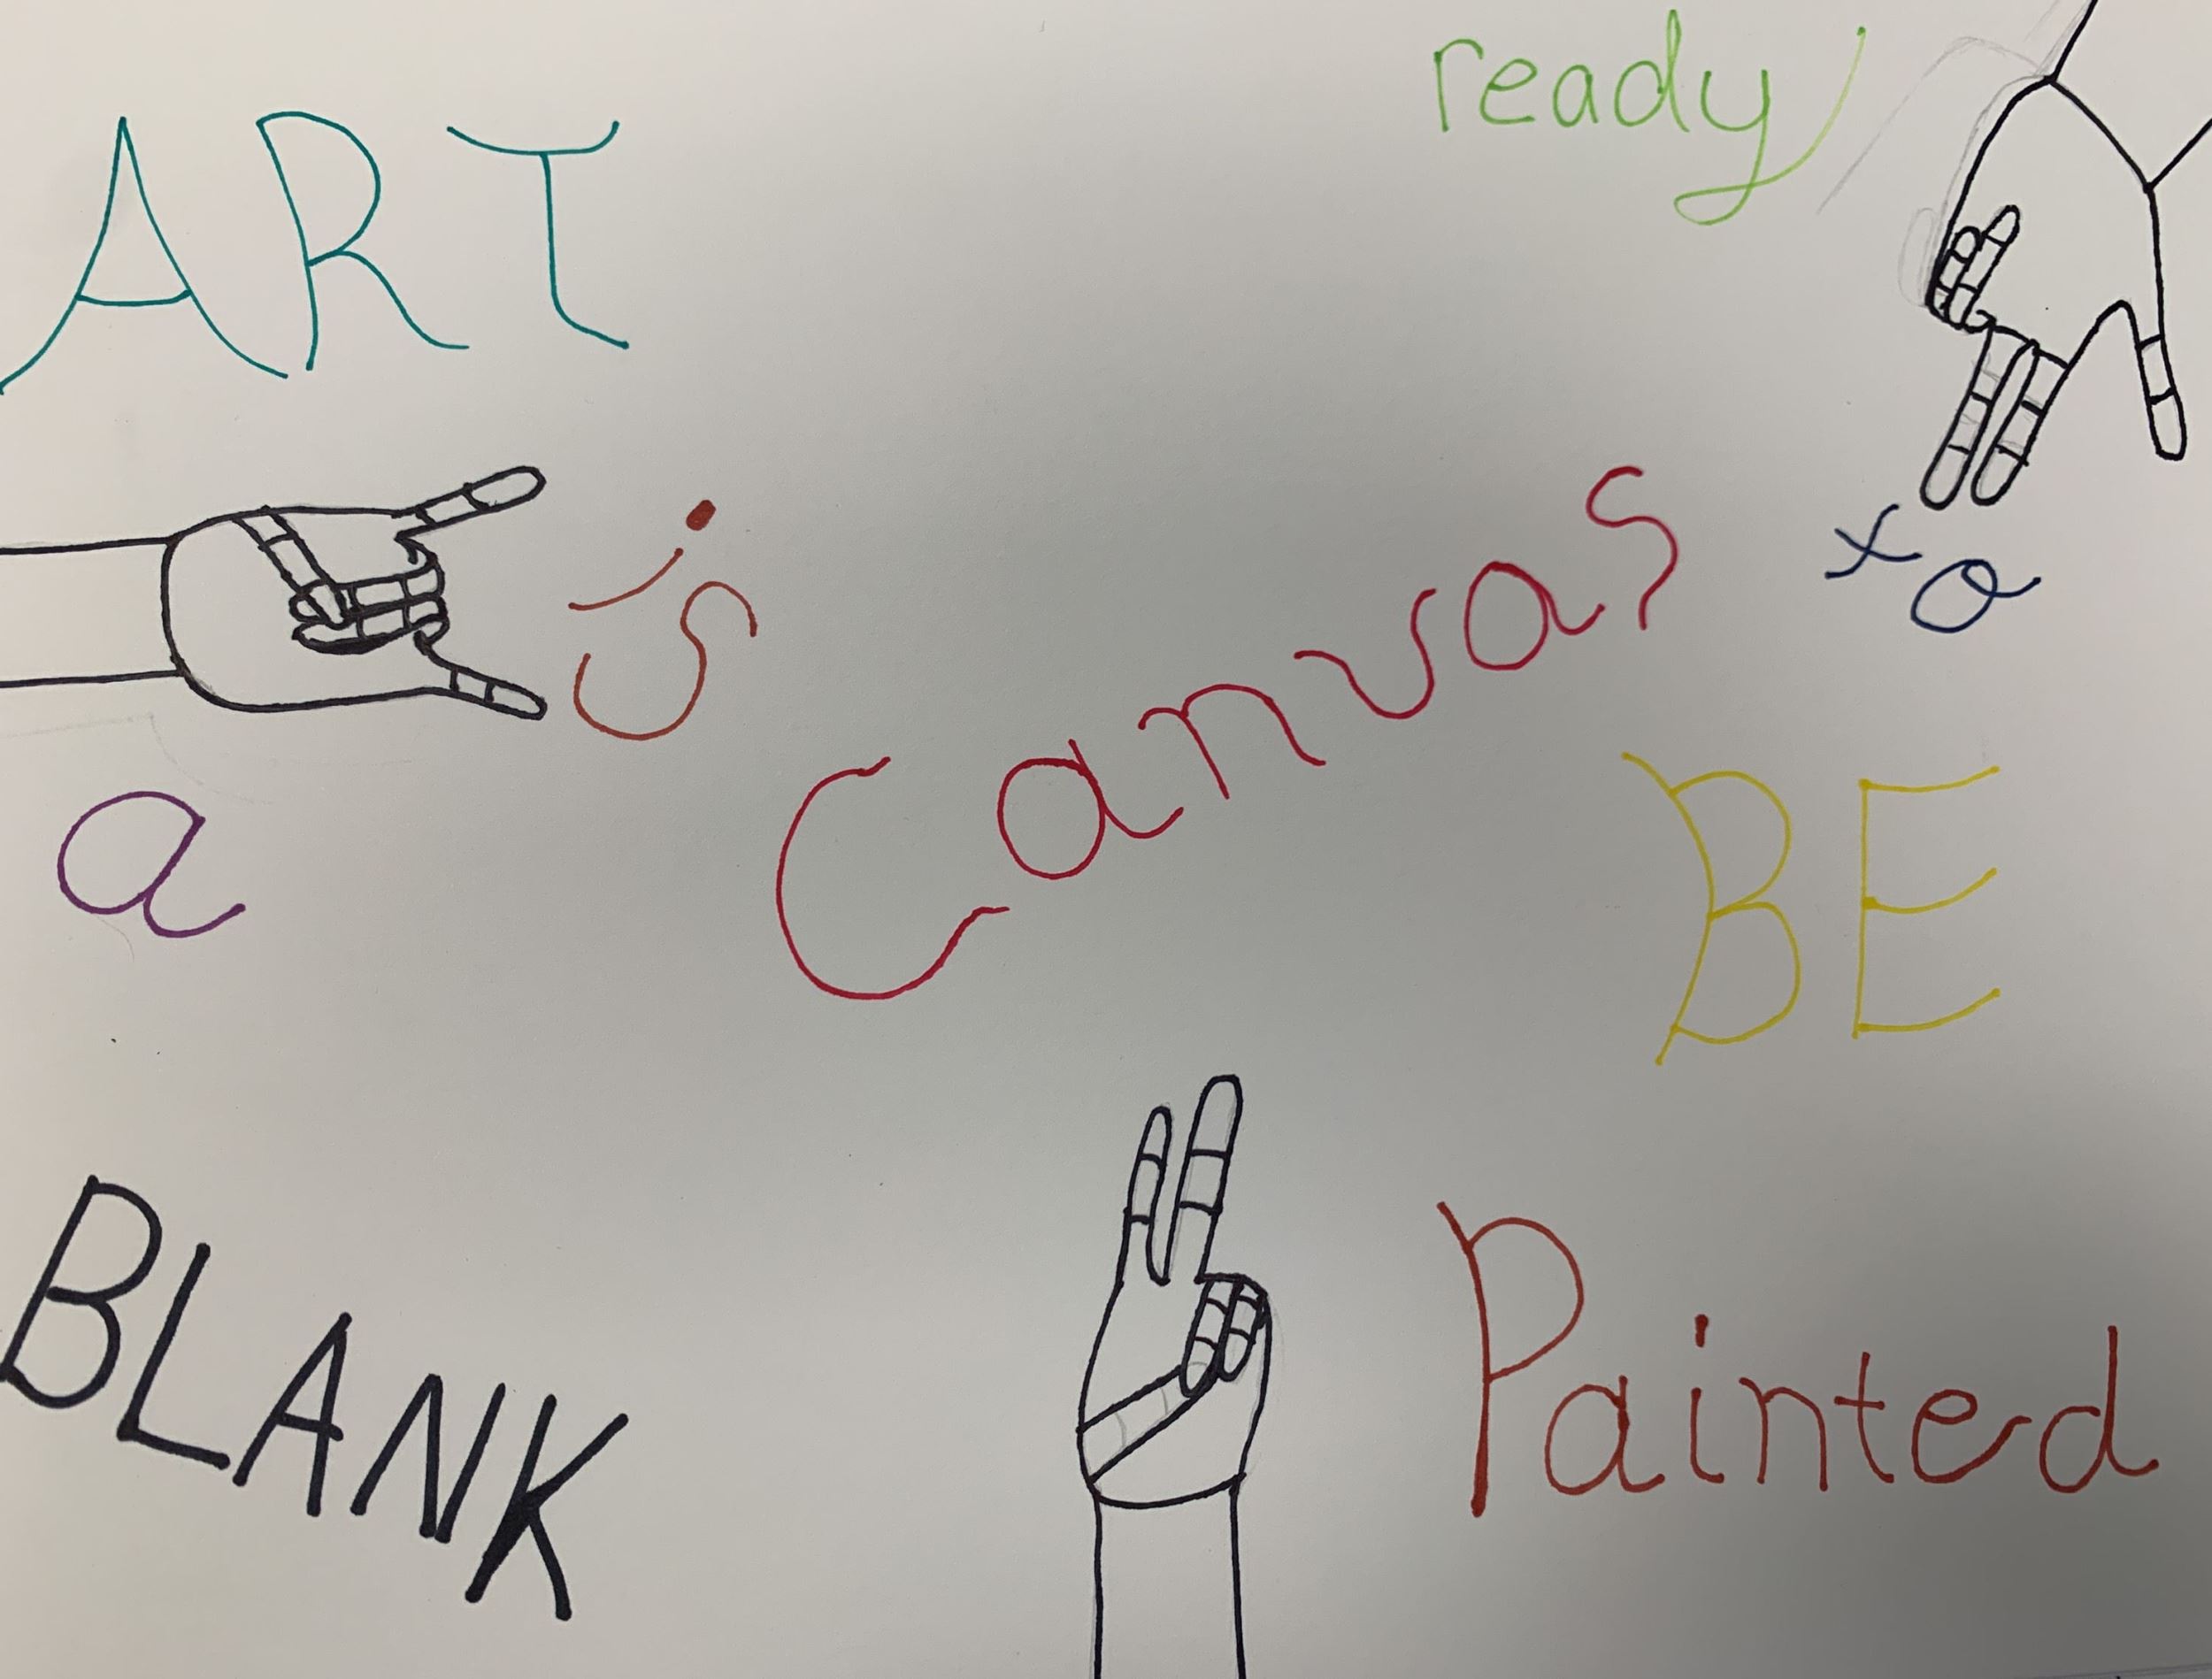 ART
is
a
BLANK
Canvas
ready
to
BE
Painted